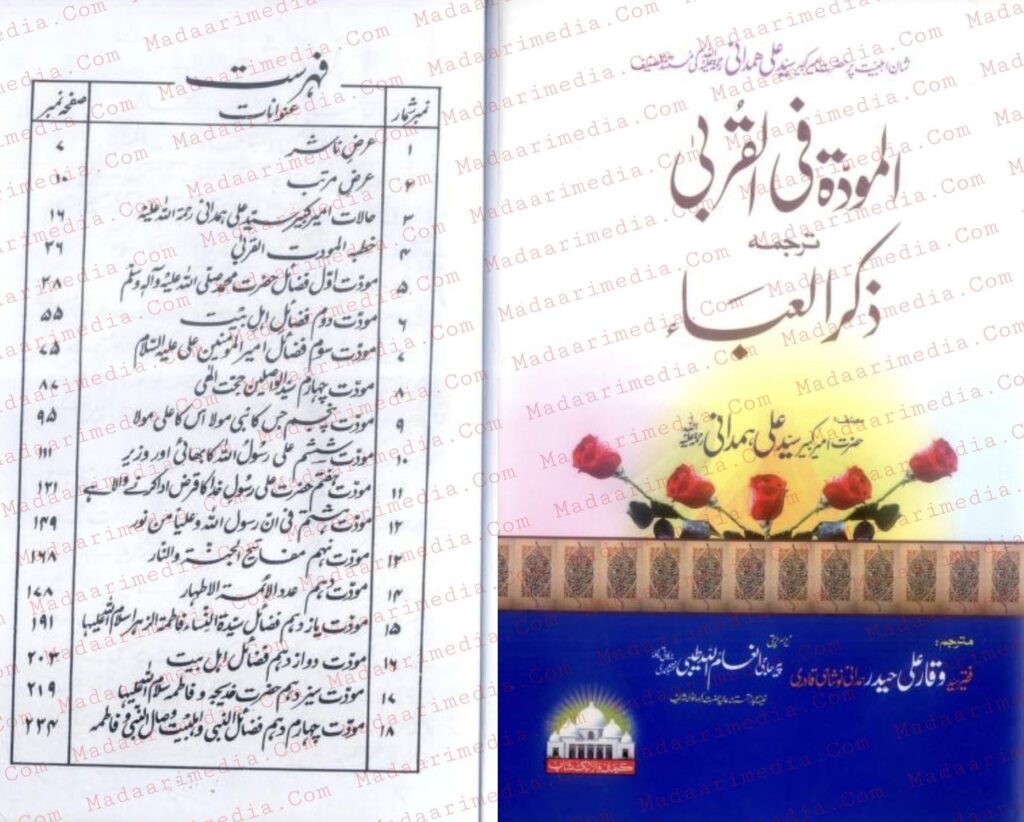 فہرست
نمبر شمار عنوانات صفحہ نمبر
۱ عرض ناشر ۷
۲ عرض مرتب ۱۰
۳ حالات امیر کبیر سید علی ہمدانی رحمۃ اللہ علیہ ۱۶
۴ خطبہ المودت القربیٰ ۲۶
۵ مودّت اوّل فضائل حضرت محمد صلی اللہ علیہ وآلہٖ وسلم ۲۸
۶ مودّت دوم فضائل اہل بیت ۵۵
۷ مودّت سوم فضائل امیر المؤمنین علی علیہ السلام ۷۵
۸ مودّت چہارم سیّد الواصلین حجت الٰہی ۸۷
۹ مودّت پنجم جس کا نبی مولا اس کا علی مولا ۹۵
۱۰ مودّت ششم علی رسولُ اللہ کا بھائی اور وزیر ۱۱۱
۱۱ مودّت ہفتم حضرت علی رسولِ خدا کا قرض ادا کرنے والا ہے ۱۲۱
۱۲ مودّت ہشتم فی انّ رسول اللہ و علیاً من نور ۱۴۹
۱۳ مودّت نہم مفاتیح الجنۃ والنار ۱۶۸
۱۴ مودّت دہم عدد الائمۃ الاطہار ۱۷۸
۱۵ مودّت یازدہم فضائل سیدۃ النساء فاطمۃ الزہرا سلام اللہ علیہا ۱۹۱
۱۶ مودّت دوازدہم فضائل اہل بیت ۲۰۳
۱۷ مودّت سیزدہم حضرت خدیجہ و فاطمہ سلام اللہ علیہا ۲۱۹
۱۸ مودّت چہاردہم فضائل النبی و اہلبیت وصال النبی و فاطمہ ۲۳۴
شان اہلبیت پر حضرت امیر کبیر سید علی ہمدانی رحمۃ اللہ علیہ کی مستند تصنیف
المودّۃ فی القربیٰ
ترجمہ
ذکر العباء
مصنف:
حضرت امیر کبیر سید علی ہمدانی رحمۃ اللہ علیہ
مترجم:
فقیر سید وقار علی حیدر ہمدانی نوشاہی قادری
پیر حاجی انعام اللہ طیبی
کرمانوالہ بک شاپ
Madaarimedia.Com